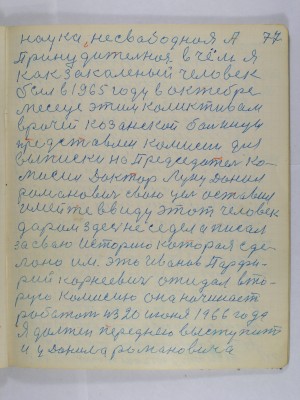 наука, несвабодноя А 77
Принудителноя. в чём Я
как закаленый человек
был в 1965 году в октебре
месеце этим коликтивам
врачей козанской болницы
представлен комисии для
выписки но Председатель ко-
мисии Доктор Лунц Донил
романович свою цел оставил
имейте в виду этот человек
даром здесь не седел а писал
за сваю историю которая сде-
лоно им. это Иванов Парфи-
рий корнеевич ожидал вто-
рую комисию она начинаст
работат из 20 июня 1966 года
Я должен переднею выступит
и у Донила романовича